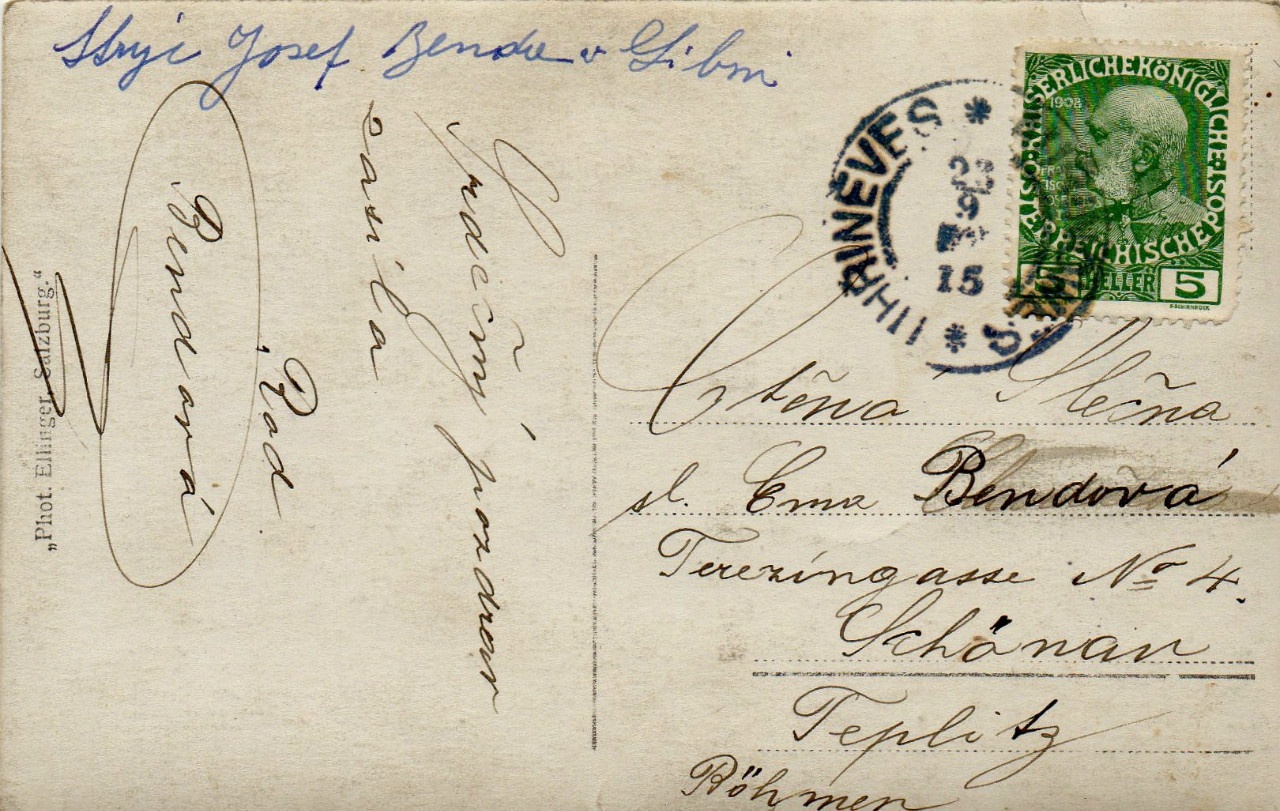 Strýc Josef Benda v Libni
Srdečný pozdrav
zasílá
Rod.
Bendová
„Phot. Ellinger, Salzburg.“
UHŘINĚVES
9
15
KAISERLICHE KÖNIGLICHE ÖSTERREICHISCHE POST
1908
5 HELLER 5
Ctěná Slečna
sl. Ema Bendová
Terezíngasse No 4.
Schönau
Teplitz
Böhmen